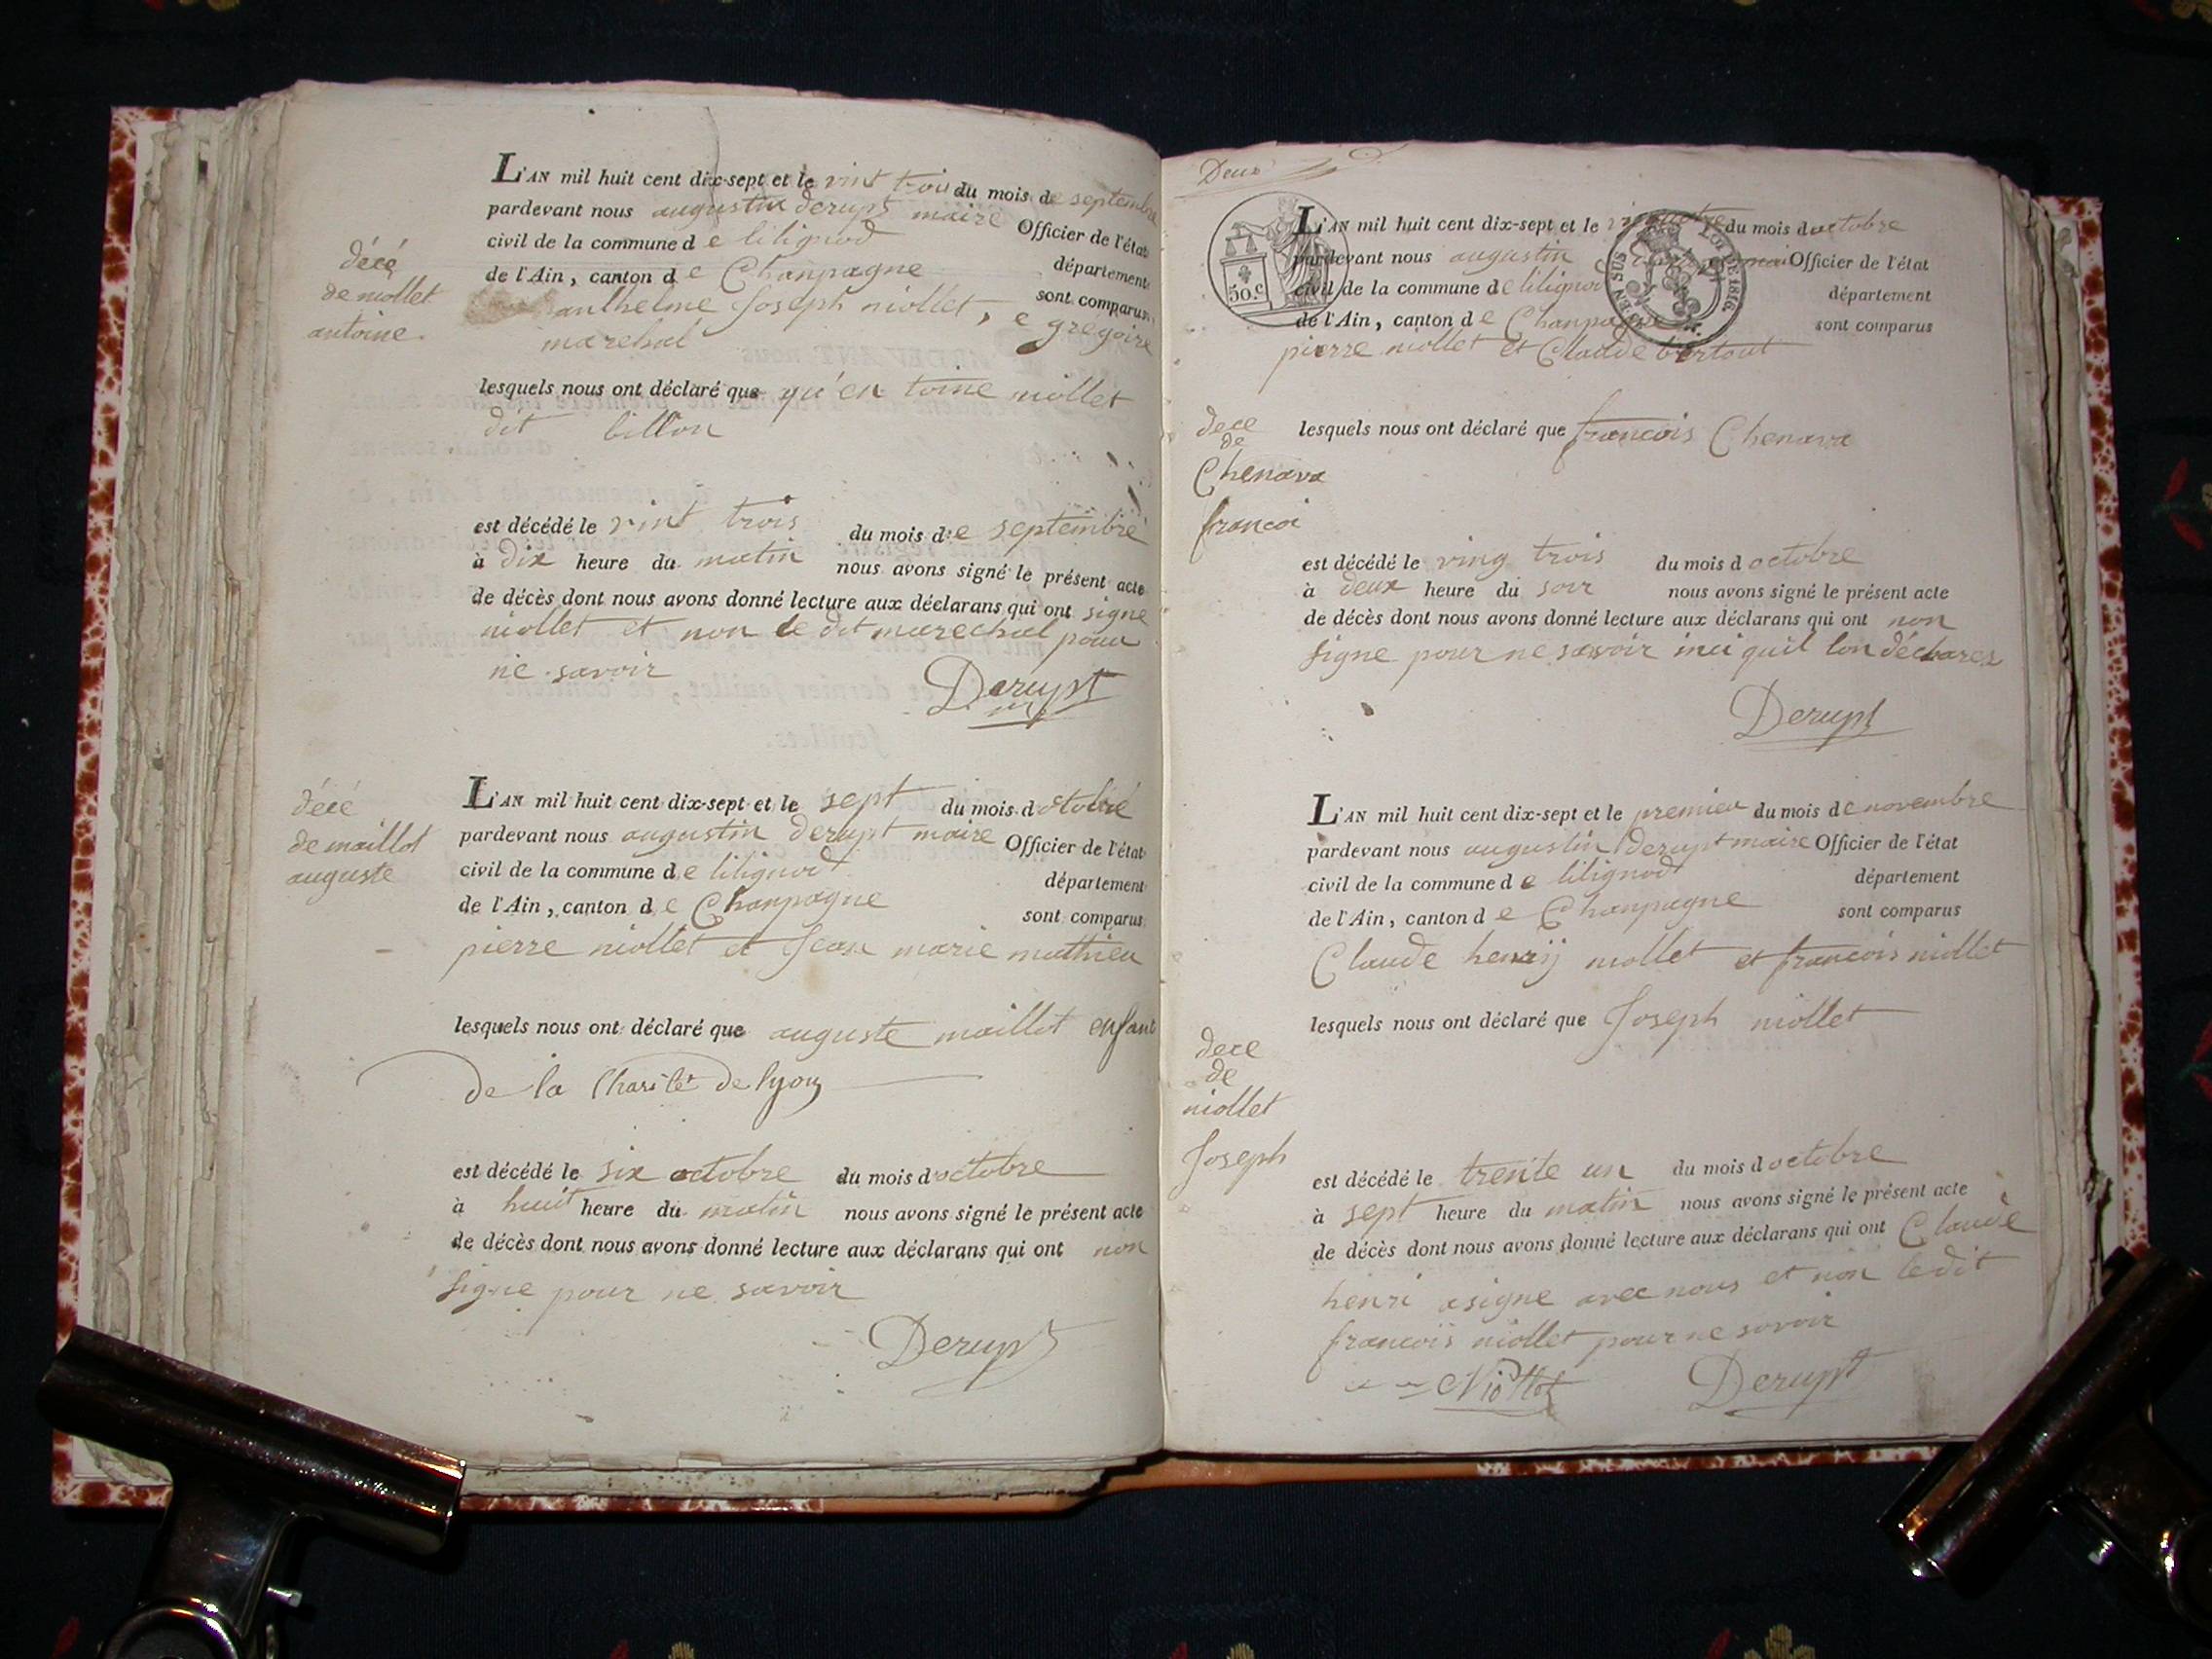 décé
de niollet
antoine.
L'AN mil huit cent dix-sept et le vint trois du mois de septembre
pardevant nous augustin derupt maire Officier de l'état
civil de la commune de lilignod département
de l'Ain, canton de Chanpagne sont comparus
anthelme Joseph niollet, e gregoire
marehal
lesquels nous ont déclaré que qu'en toine niollet
dit billon
est décédé le vint trois du mois de septembre
à dix heure du matin nous avons signé le présent acte
de décès dont nous avons donné lecture aux déclarans qui ont signe
niollet et non le dit marechal pour
ne savoir
Derupt
décé
de maillot
auguste
L'AN mil huit cent dix-sept et le sept du mois doctobre
pardevant nous augustin derupt maire Officier de l'état
civil de la commune de lilignod département
de l'Ain, canton de Chanpagne sont comparus
pierre niollet et Jean marie mathieu
lesquels nous ont déclaré que auguste maillot enfant
de la Charitet de lyon
est décédé le six octobre du mois doctobre
à huit heure du matin nous avons signé le présent acte
de décès dont nous avons donné lecture aux déclarans qui ont non
signe pour ne savoir
Derupt
Deux
50.c
EN SUS
LOI DE 1816.
L'AN mil huit cent dix-sept et le du mois doctobre
pardevant nous augustin Officier de l'état
civil de la commune de lilignod département
de l'Ain, canton de Chanpagne sont comparus
pierre niollet et Claude bertout
dece
de
Chenava
francoi
lesquels nous ont déclaré que francois Chenava
est décédé le ving trois du mois doctobre
à deux heure du soir nous avons signé le présent acte
de décès dont nous avons donné lecture aux déclarans qui ont non
signe pour ne savoir inci quil lon déclarez
Derupt
L'AN mil huit cent dix-sept et le premier du mois de novembre
pardevant nous augustin derupt maire Officier de l'état
civil de la commune de lilignod département
de l'Ain, canton de Chanpagne sont comparus
Claude henrij niollet et francois niollet
dece
de
niollet
Joseph
lesquels nous ont déclaré que Joseph niollet
est décédé le trente un du mois doctobre
à sept heure du matin nous avons signé le présent acte
de décès dont nous avons donné lecture aux déclarans qui ont Claude
henri asigne avec nous et non ledit
francois niollet pour ne savoir
Niollet Derupt